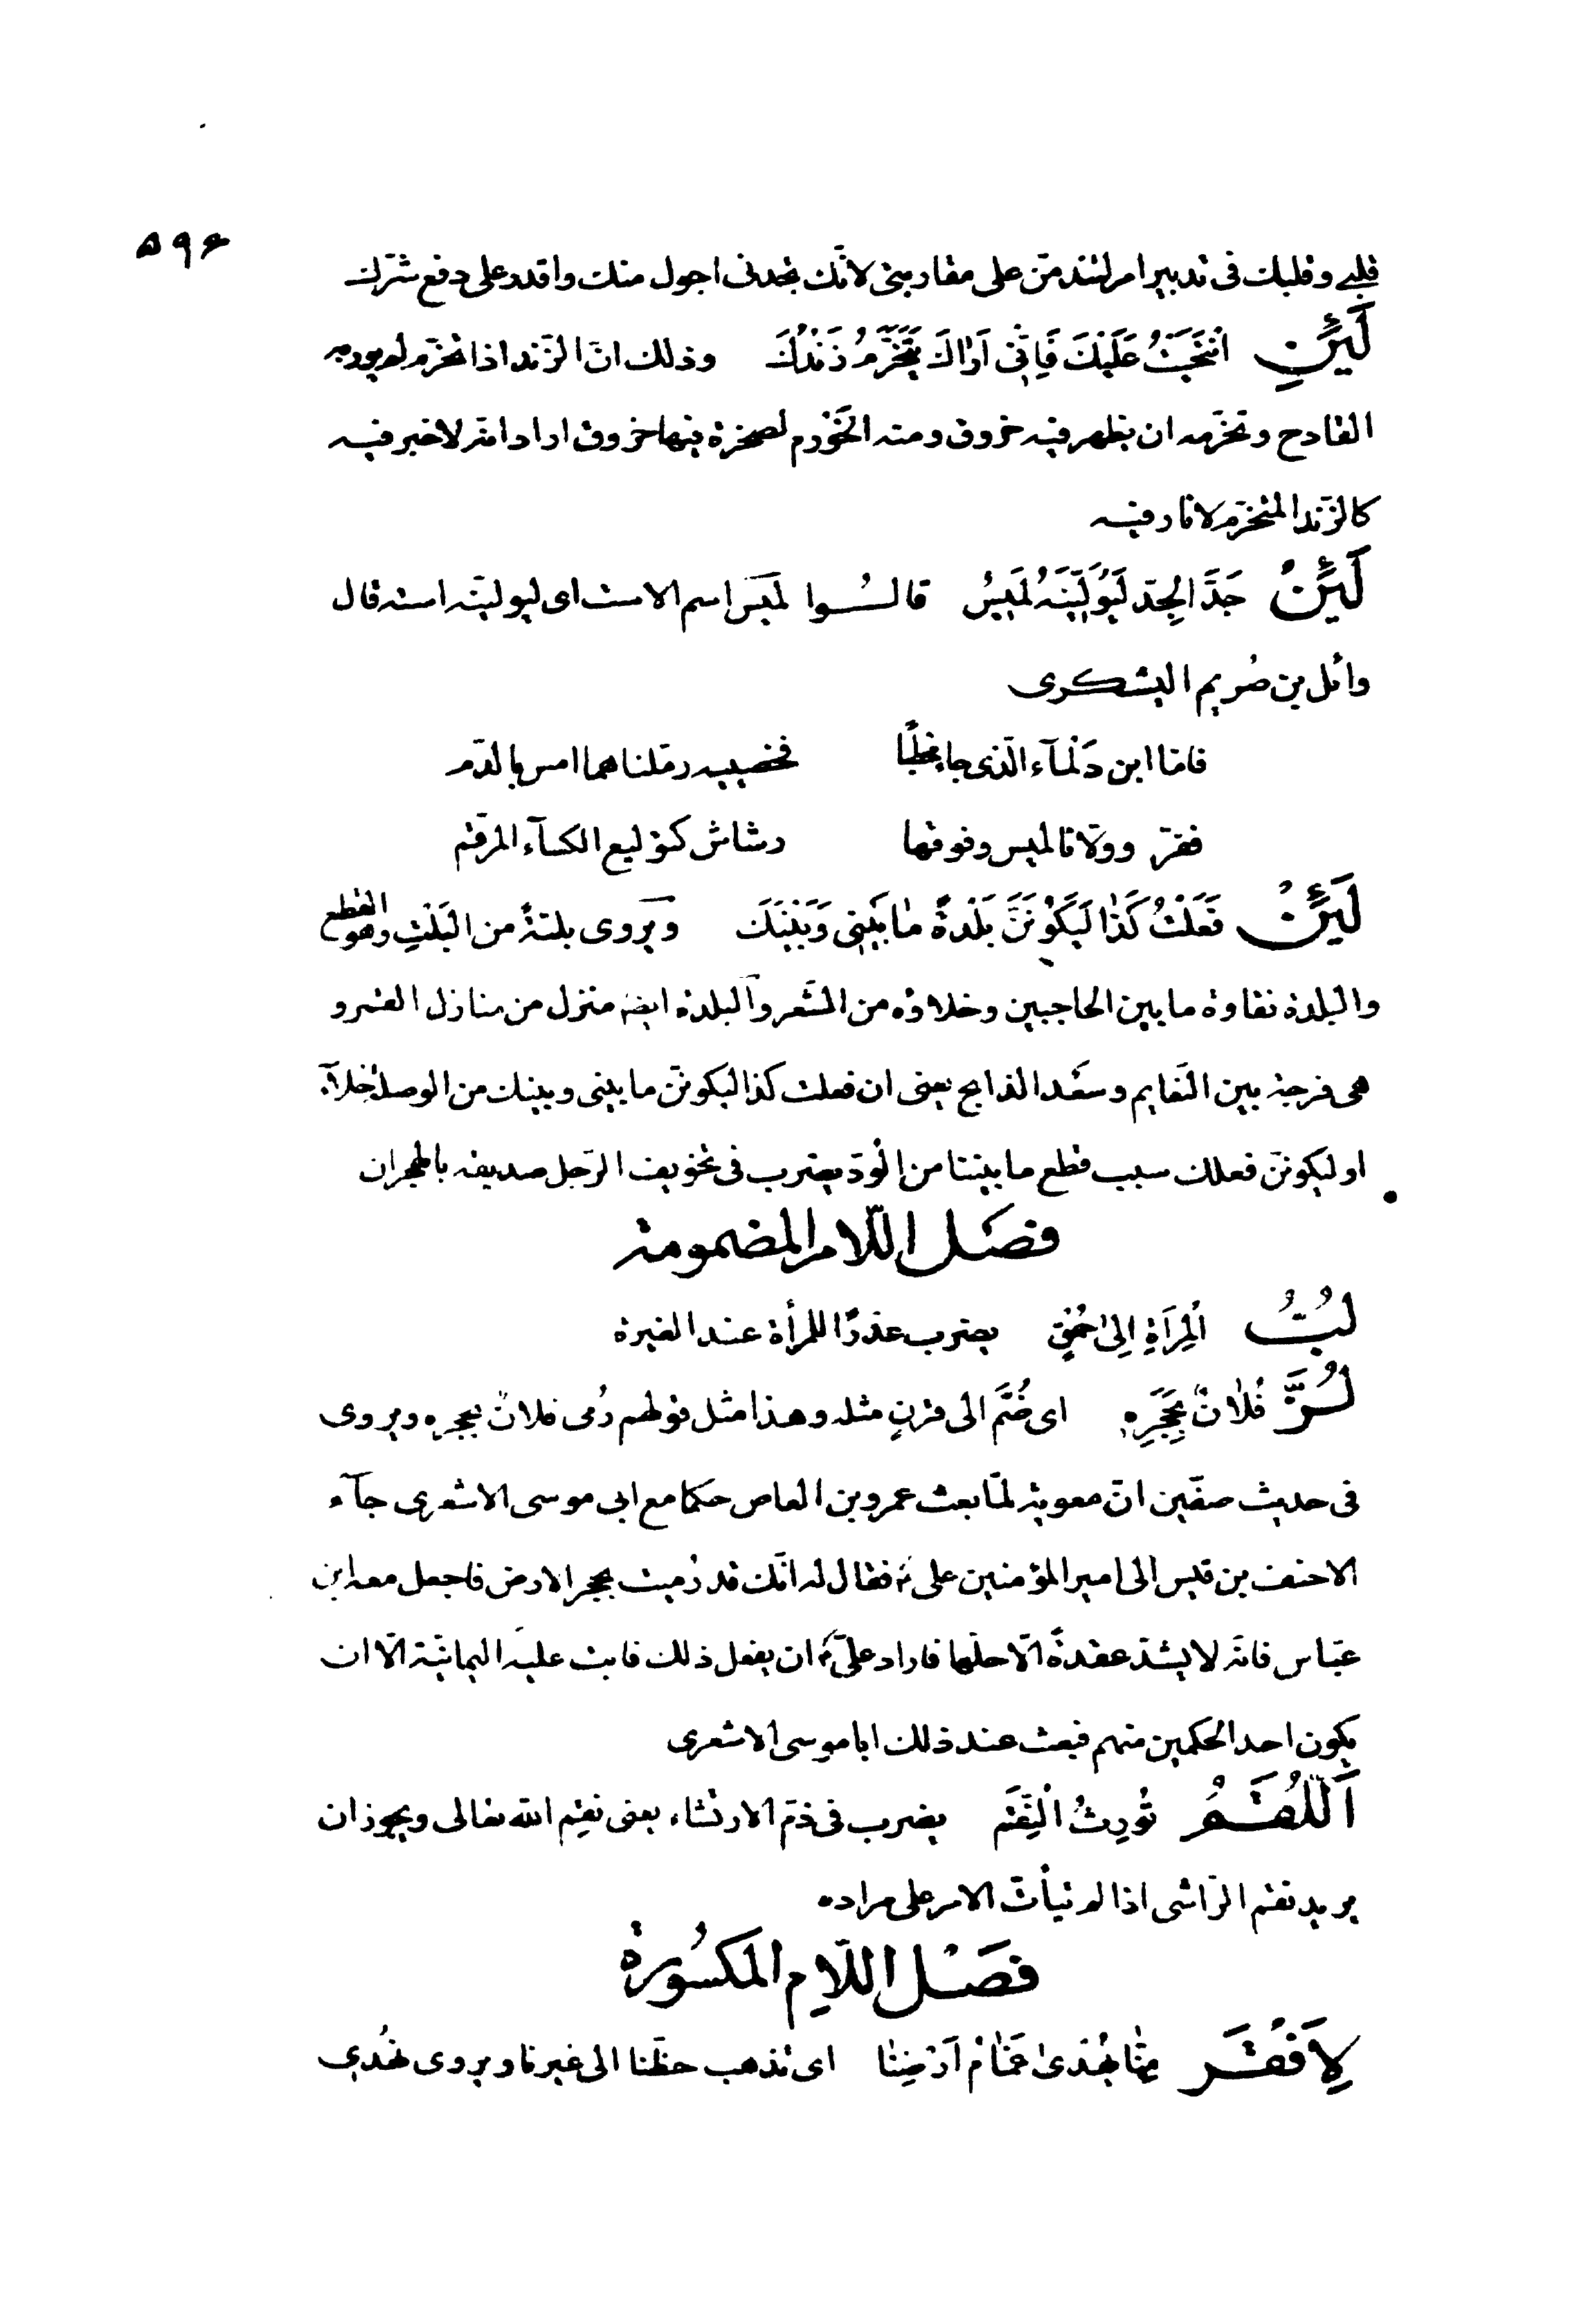 ۵۹۶
قلبى وقلبك فى تدبير امر لتندمنّ على مقاربتى لانّك تجدنى اجول منك واقدر على دفع شرّك
لَئِنِ انْتَحَيْتُ عَلَيْكَ فَاِنّى اَرٰاكَ يَتَخَرَّمُ زَنْدُكَ وذلك انّ الزّند اذا تخرّم لم يور به
القادح وتخرّمه ان يظهر فيه خروق ومنه الخَوْرم لصخرة فيها خروق اراد انّه لا خير فيه
كالزّند المتخرّم لا نار فيه
لَئِنْ جَدَّ الجِدّ لَيُوَلِّيَنَّهُ لَمِيسُ قالوا لميس اسم الاست اى ليولينّه استه قال
وائل بن صُريم اليشكرى
فامّا ابن دَلْمآء الّذى جاء مخطبًا فخصييه رمّلناهما امس بالدّم
ففرّ وولّانا لميس وفوقها رشاش كتوليع الكسآء المرقّم
لَئِنْ فَعَلْتَ كَذٰا لَيَكُوْنَنَّ بَلْدَةً مٰا بَيْنِى وَبَيْنَكَ ويروى بلتةً من البَلْتِ وهو القطع
والبلدة نقاوة ما بين الحاجبين وخلاؤه من الشّعر وآلبلدة ايضا منزل من منازل القمر و
هى فرجة بين النّعايم وسعد الذابح يعنى ان فعلت كذا ليكوننّ ما بينى وبينك من الوصلة خلاء
او ليكوننّ فعلك سبب قطع ما بيننا من الودّ يضرب فى تخويف الرّجل صديقه بالهجران
فصَل اللّام المضمومة
لُبُّ المِرَاَةِ اِلىٰ حُمْقٍ يضرب عذرًا للمرأة عند الغيرة
لُزَّ فُلٰانٌ بِحَجَرِهِ اى ضُمَّ الى قرنٍ مثله وهذا مثل قولهم رُمى فلانٌ بحجره ويروى
فى حديث صفّين انّ معوية لمّا بعث عمرو بن العاص حكما مع ابى موسى الاشعرى جآء
الاحنف بن قيس الى امير المؤمنين على ؑ فقال له انّك قد رُميت بحجر الارض فاجعل معه ابن
عبّاس فانّه لا يشدّ عقدةً الّا حلّها فاراد علىّ ؑ ان يفعل ذلك فابت عليه اليمانيّة الّا ان
يكون احد الحكمين منهم فبعث عند ذلك ابا موسى الاشعرى
اَللُّقَمُ تُورِثُ الْنِّقَمَ يضرب فى ذمّ الارتشاء يعنى نقِم الله تعالى ويجوز ان
يريد نقم الرّاشى اذا لم يتأتّ الامر على مراده
فصَل اللّامِ المكسُورة
لِاَفْقَرَ مِنّٰا يُهْدٰى غَمٰامُ اَرْضِنٰا اى تذهب حظّنا الى غيرنا ويروى نُهدى